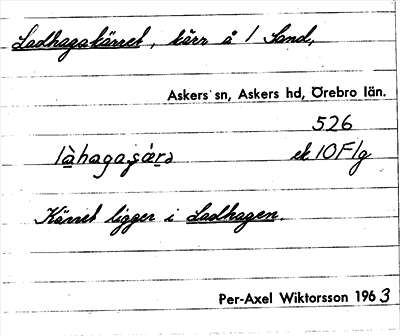 Ladhagakärret, kärr å 1 Sand,
Askers sn, Askers hd, Örebro län.
526
ek 10 F 1g
Kärret ligger i Ladhagen.
Per-Axel Wiktorsson 1963